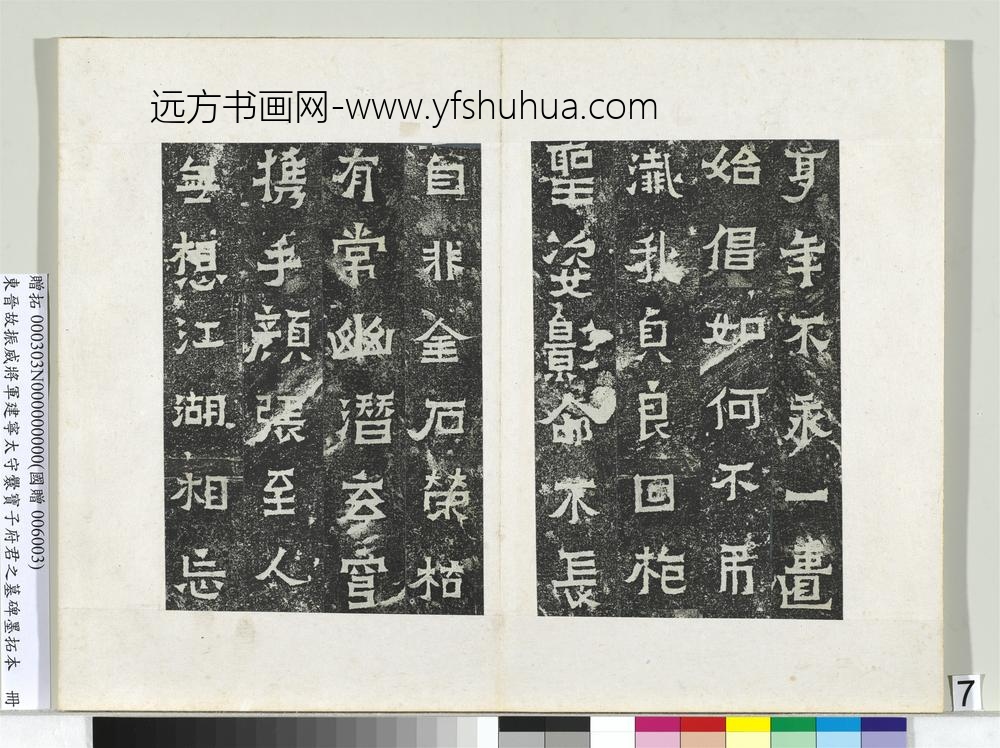 远方书画网-www.yfshuhua.com
享年不永一匱
始倡如何不弔
殲我貞良回枹
聖姿影命不長
自非金石榮枯
有常幽潛玄穹
携手顏張至人
無想江湖相忘
贈拓 000303N000000000(國贈 006003)
東晉故振威將軍建寧太守爨寶子府君之墓碑墨拓本 冊
7